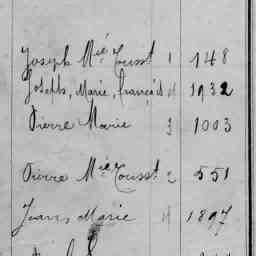 Joseph Mie Tousst 1 148
Joseph, Marie, françois 4 1932
Pierre Marie 3 1003
Pierre Mie Tousst 2 551
Jean, Marie 4 1897